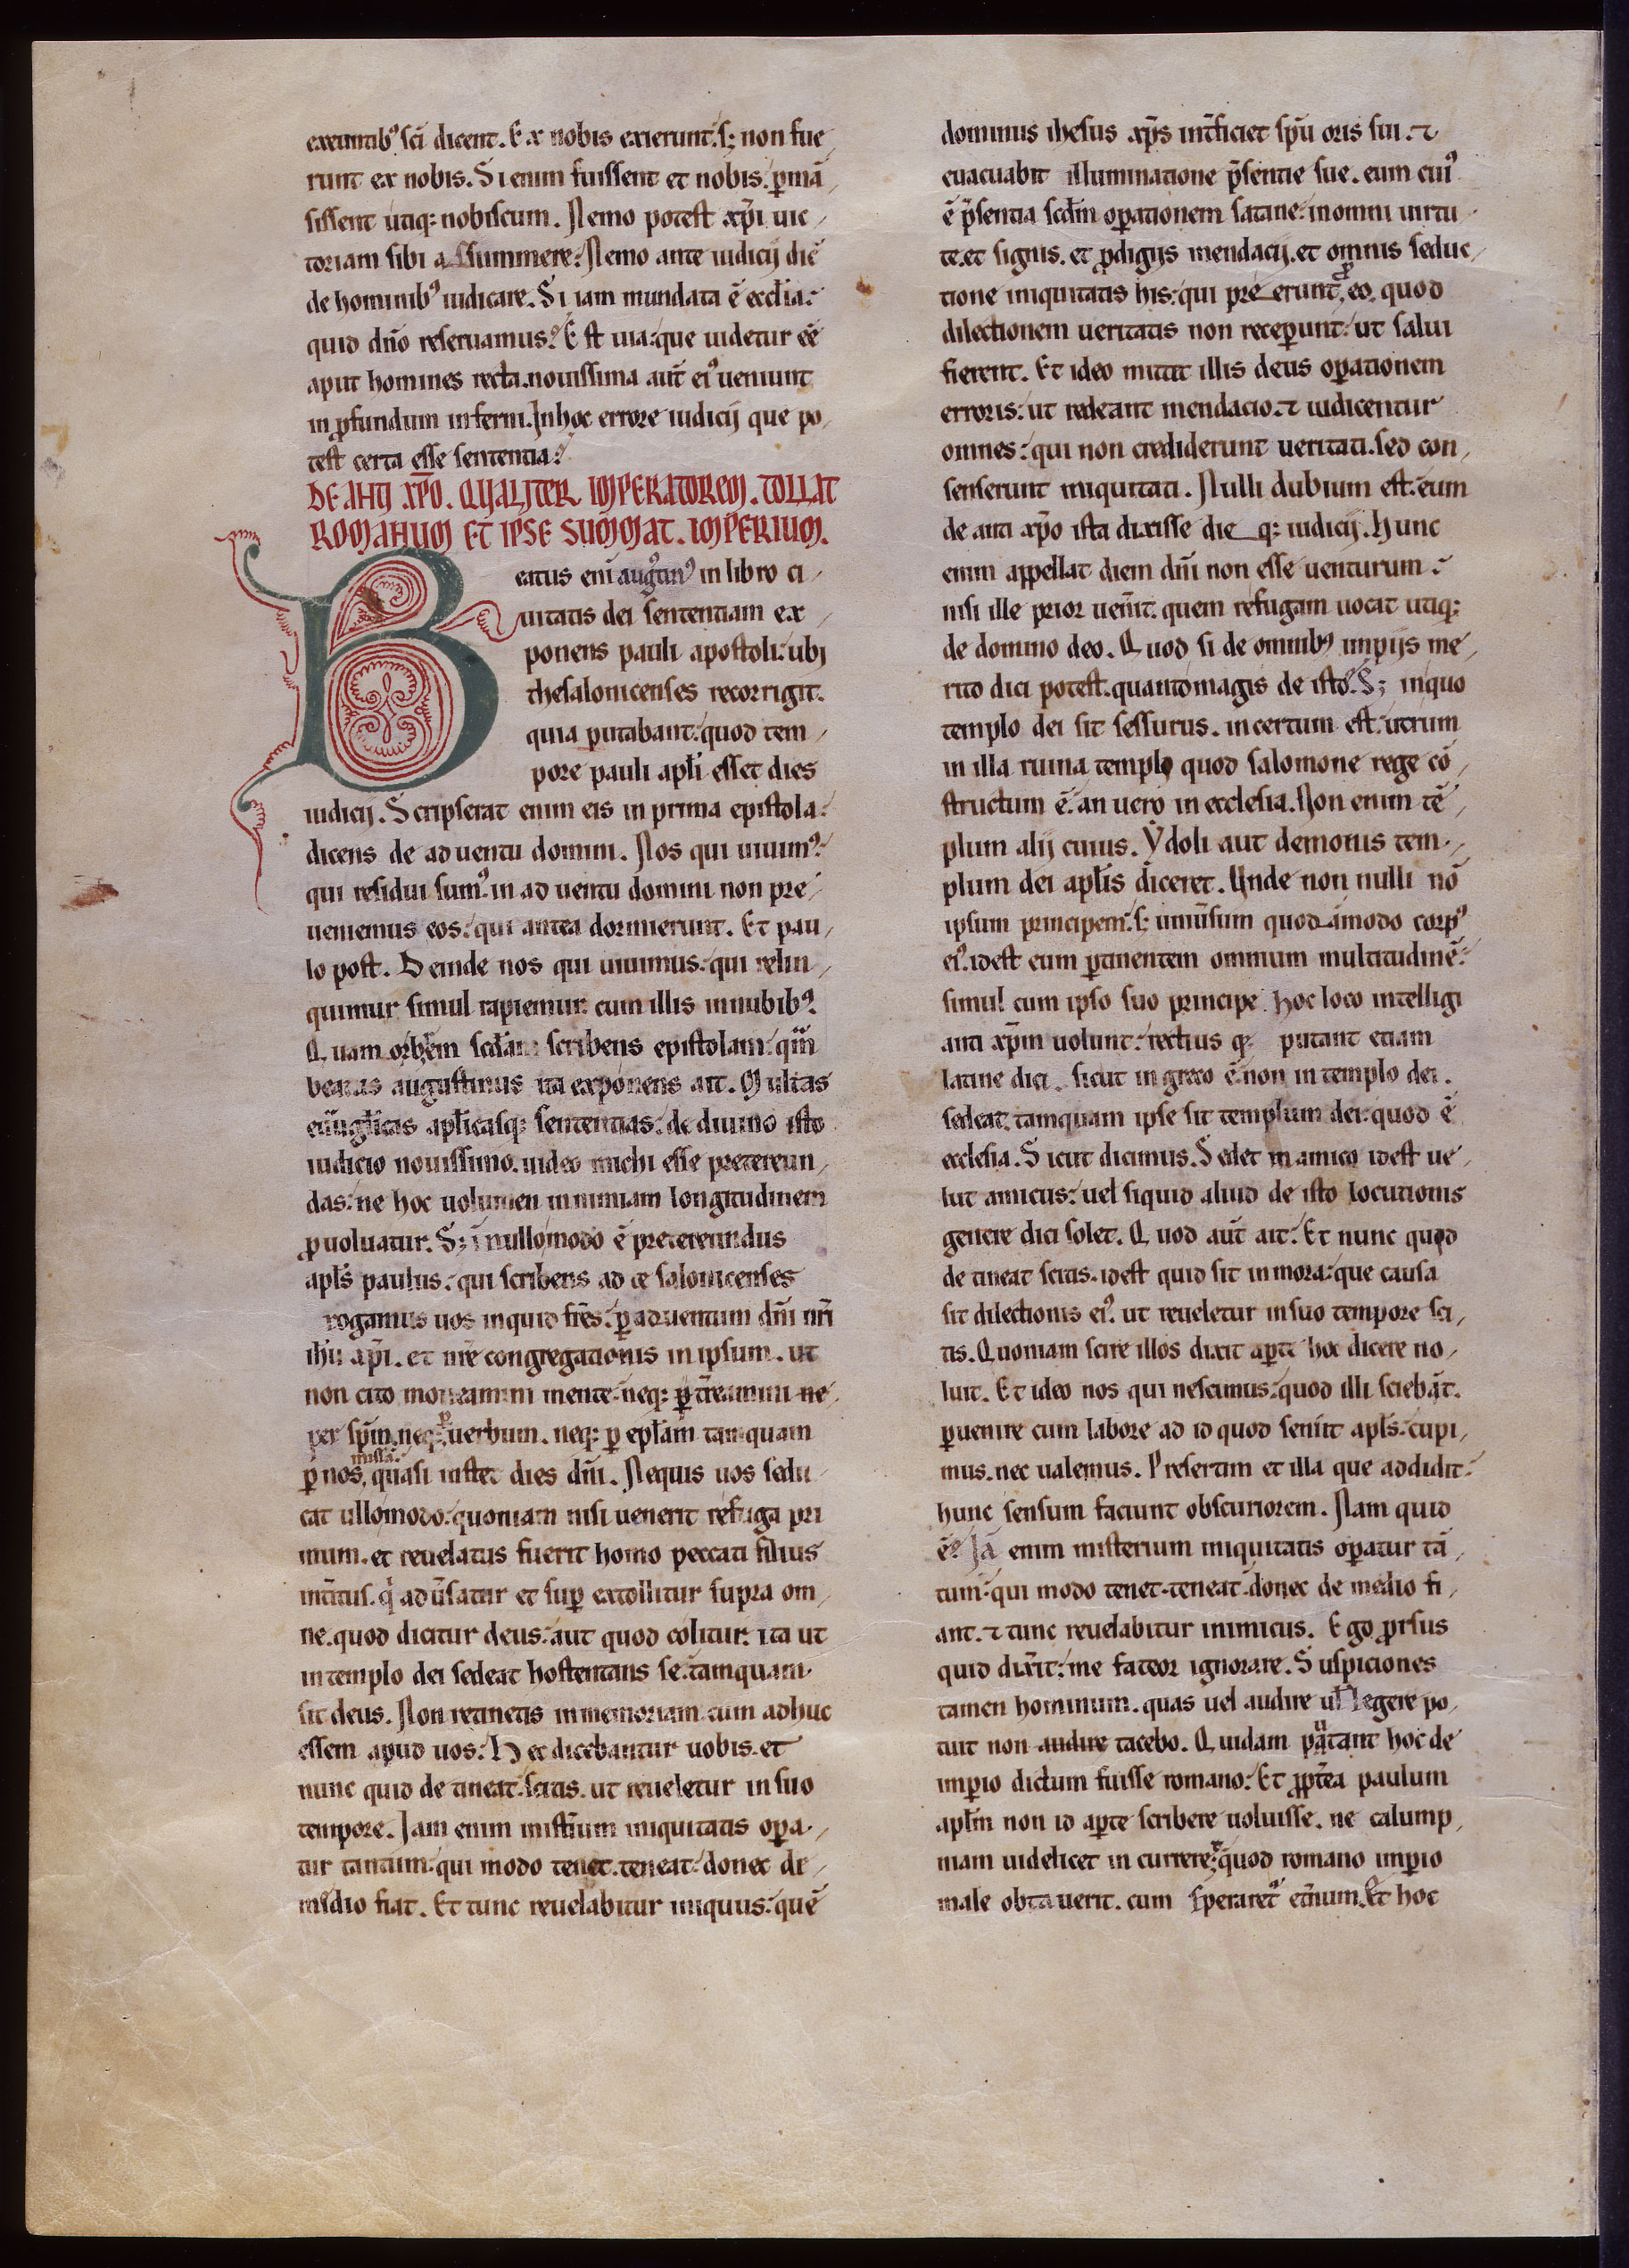 exeuntib⁹ sc̄i dicent. Ex nobis exierunt. s; non fue
runt ex nobis. Si enim fuissent et nobis. p̱mā
sissent utiq; nobiscum. Nemo potest xp̄i uic
toriam sibi assummere: Nemo ante iudicij diē
de hominib⁹ iudicare. Si iam mundata ē eccl̄ia:
quid dn̄o reseruamus? Est uia: que uidetur eē
aput homines recta. nouissima aut̄ ei⁹ ueniunt
in ꝓfundum inferni. In hoc errore iudicij que po
test certa esse sententia?
DE ANTI XP̄O. QUALITER IMPERATOREM. TOLLAT
ROMANUM ET IPSE SUMMAT. IMPERIUM.
Beatus eni augustin⁹ in libro ci
uitatis dei sententiam ex
ponens pauli apostoli: ubj
thesalonicenses recorrigit.
quia putabant: quod tem
pore pauli apl̄i esset dies
iudicij. Scripserat enim eis in prima epistola:
dicens de aduentu domini. Nos qui uiuim⁹:
qui residui sum⁹. in aduentu domini non pre
ueniemus eos: qui antea dormierunt. Et pau
lo post. Deinde nos qui uiuimus: qui relin
quimur simul rapiemur. cum illis in nubib⁹.
Quam scribens epistolam:
beatus augustinus ita exponens ait. Multas
apl̄icasq; sententias: de diuino isto
iudicio nouissimo. uideo michi esse pretereun
das: ne hoc uolumen in nimiam longitudinem
ꝓuoluatur. S; nullomodo ē pretereundus
apl̄s paulus: qui scribens ad te salonicenses
rogamus uos inquid fr̄es: ꝑ aduentum dn̄i nr̄i
ih̄u xp̄i. et nr̄e congregationis in ipsum. ut
non cito moueamini mente: neq; ꝑt̄reamini ne
per sp̄m. neq; ꝑ uerbum. neq; ꝑ epl̄am tamquam
ꝑ nos missā. quasi instet dies dn̄i. Nequis uos sedu
cat ullomodo: quoniam nisi uenerit refuga pri
mum. et reuelatus fuerit homo peccati filius
int̄itus. q' adūsatur et suꝑ extollitur supra om
ne. quod dicitur deus: aut quod colitur. ita ut
in templo dei sedeat hostentans se. tamquam
sit deus. Non retinetis in memoriam. cum adhuc
essem apud uos: Hec dicebantur uobis. et
nunc quid detineat. scitis. ut reueletur in suo
tempore. Jam enim mist̄ium iniquitatis oꝑa
tur tantum: qui modo tenet. teneat: donec de
medio fiat. Et tunc reuelabitur iniquus: quē
dominus ihesus xp̄s int̄ficiet sp̄u oris sui. ⁊
euacuabit illuminatione p̄sentie sue. eum cui⁹
ē p̄sentia scd̄m oꝑationem satane: in omni uirtu
te. et signis. et ꝓdigijs mendacij. et omnis seduc
tione iniquitatis his: qui pre erunt, ꝓ eo quod
dilectionem ueritatis non receꝑunt: ut salui
fierent. Et ideo mittit illis deus oꝑationem
erroris: ut redeant mendacio. ⁊ iudicentur
omnes: qui non crediderunt ueritati. sed con
senserunt iniquitati. Nulli dubium est: eum
de anti xp̄o ista dixisse die q; iudicij. Hunc
enim appellat diem dn̄i non esse uenturum:
nisi ille prior uen̄it. quem refugam uocat utiq;
de domino deo. Quod si de omnib⁹ impijs me
rito dici potest. quantomagis de isto? S; in quo
templo dei sit sessurus. incertum est. utrum
in illa ruina templo quod salomone rege cō
structum ē. an uero in ecclesia. Non enim tē
plum alij cuius. Ydoli aut demonis tem
plum dei apl̄is diceret. Unde non nulli nō
ipsum principem: s; uniūsum quodāmodo corp⁹
ei⁹. idest eum ꝑtinentem omnium multitudinē:
simul cum ipso suo principe hoc loco intelligi
anti xp̄m uolunt: rectius q; putant etiam
latine dici. sicut in greco ē. non in templo dei.
sedeat. tamquam ipse sit templum dei: quod ē
ecclesia. Sicut dicimus. Sedet in amico idest ue
lut amicus: uel siquid aliud de isto locutionis
genere dici solet. Quod aut̄ ait: Et nunc quod
detineat scitis. idest quid sit in mora: que causa
sit dilectionis ei⁹. ut reueletur in suo tempore sci
tis. Quoniam scire illos dixit aꝑte hoc dicere no
luit. Et ideo nos qui nescimus: quod illi sciebāt.
ꝑuenire cum labore ad id quod sen̄it apl̄s: cupi
mus. nec ualemus. Presertim et illa que addidit:
hunc sensum faciunt obscuriorem. Nam quid
ē? Jā enim misterium iniquitatis oꝑatur tā
tum: qui modo tenet. teneat. donec de medio fi
ant. ⁊ tunc reuelabitur inimicus. Ego ꝓrsus
quid dix̄it: me fateor ignorare. Suspiciones
tamen hominum. quas uel audire ul̄ legere po
tuit non audire tacebo. Quidam putant hoc de
imꝑio dictum fuisse romano: Et ꝓpt̄ea paulum
apl̄m non id aꝑte scribere uoluisse. ne calump
niam uidelicet incurrere: quod romano imꝑio
male obtauerit. cum speraret et̄num. Et hoc